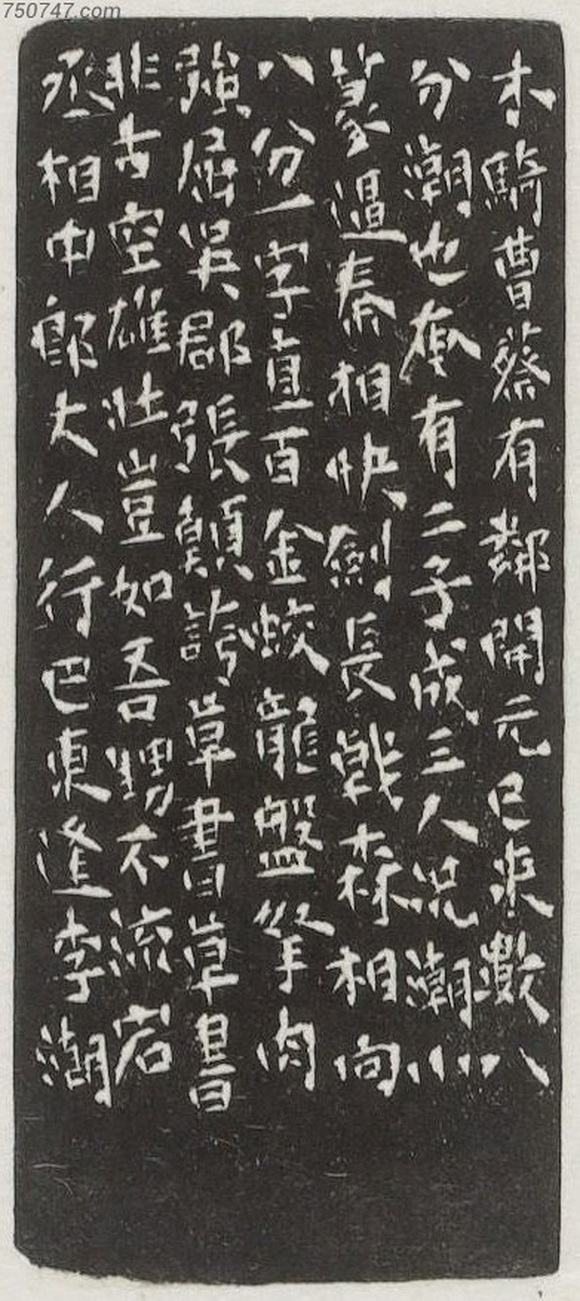 木騎曹蔡有鄰開元已來數八
分潮也奄有二子成三人況潮小
篆逼秦相快劍長戟森相向
八分一字直百金蛟龍盤拏肉
強屈吳郡張顛誇草書草書
非古空雄壯豈如吾甥不流宕
丞相中郎丈人行巴東逢李潮
750747.com